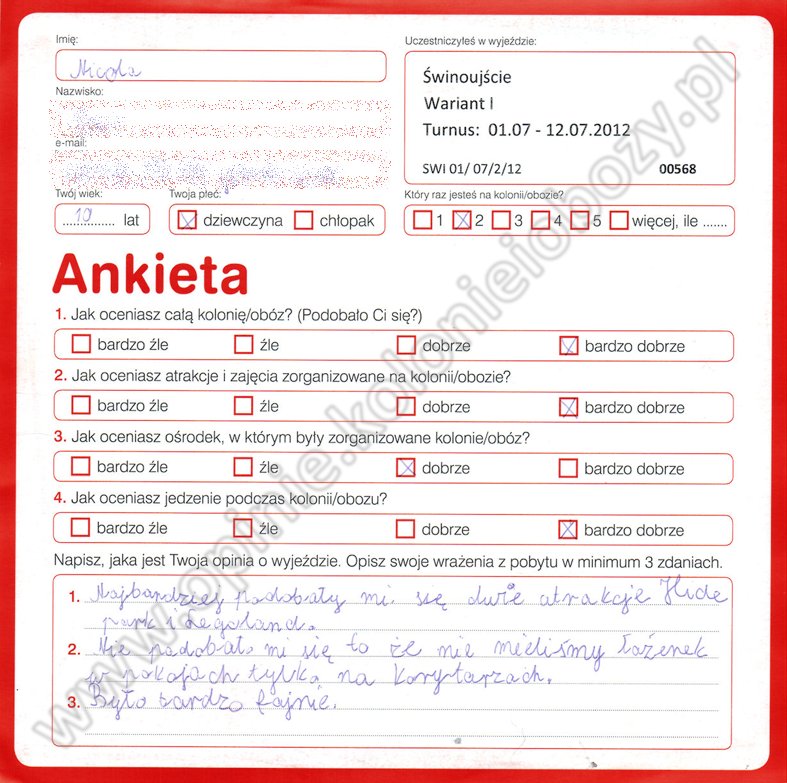 Imię:
Nicola
Uczestniczyłeś w wyjeździe:
Świnoujście
Wariant I
Turnus: 01.07 - 12.07.2012
SWI 01/ 07/2/12 00568
Nazwisko:
e-mail:
Twój wiek:
10 lat
Twoja płeć:
dziewczyna chłopak
Który raz jesteś na kolonii/obozie?
1 2 3 4 5 więcej, ile .......
Ankieta
1. Jak oceniasz całą kolonię/obóz? (Podobało Ci się?)
bardzo źle źle dobrze bardzo dobrze
2. Jak oceniasz atrakcje i zajęcia zorganizowane na kolonii/obozie?
bardzo źle źle dobrze bardzo dobrze
3. Jak oceniasz ośrodek, w którym były zorganizowane kolonie/obóz?
bardzo źle źle dobrze bardzo dobrze
4. Jak oceniasz jedzenie podczas kolonii/obozu?
bardzo źle źle dobrze bardzo dobrze
Napisz, jaka jest Twoja opinia o wyjeździe. Opisz swoje wrażenia z pobytu w minimum 3 zdaniach.
1. Najbardziej podobały mi się dwie atrakcje Hide
park i Legoland.
2. Nie podobało mi się to że nie mieliśmy łazienek
w pokojach tylko na korytarzach.
3. Było bardzo fajnie.
www.opinie.kolonieiobozy.pl